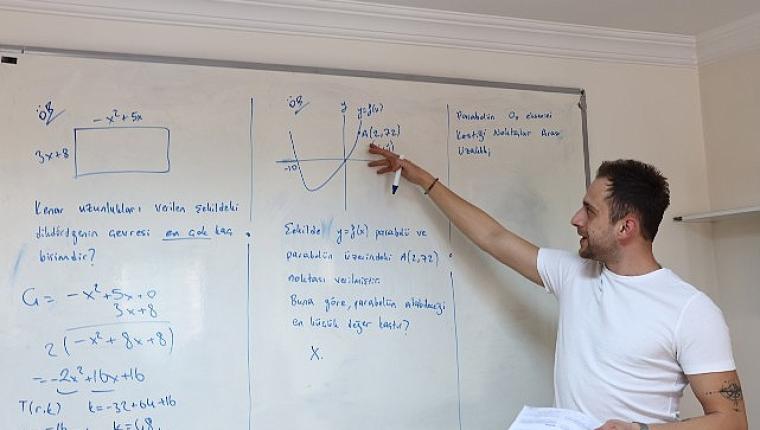 ÖR
-x²+5x
3x+8
Kenar uzunlukları verilen şekildeki
dikdörtgenin çevresi en çok kaç
birimdir?
Ç = -x²+5x+0
3x+8
2(-x²+8x+8)
= -2x²+16x+16
T(r,k) k=-32+64+16
ÖR
y
y=f(x)
A(2,72)
-10
Şekilde y=f(x) parabolü ve
parabolün üzerindeki A(2,72)
noktası verilmiştir.
Buna göre, parabolün alabileceği
en küçük değer kaçtır?
X.
Parabolün Ox eksenini
Kestiği Noktalar Arası
Uzaklık;